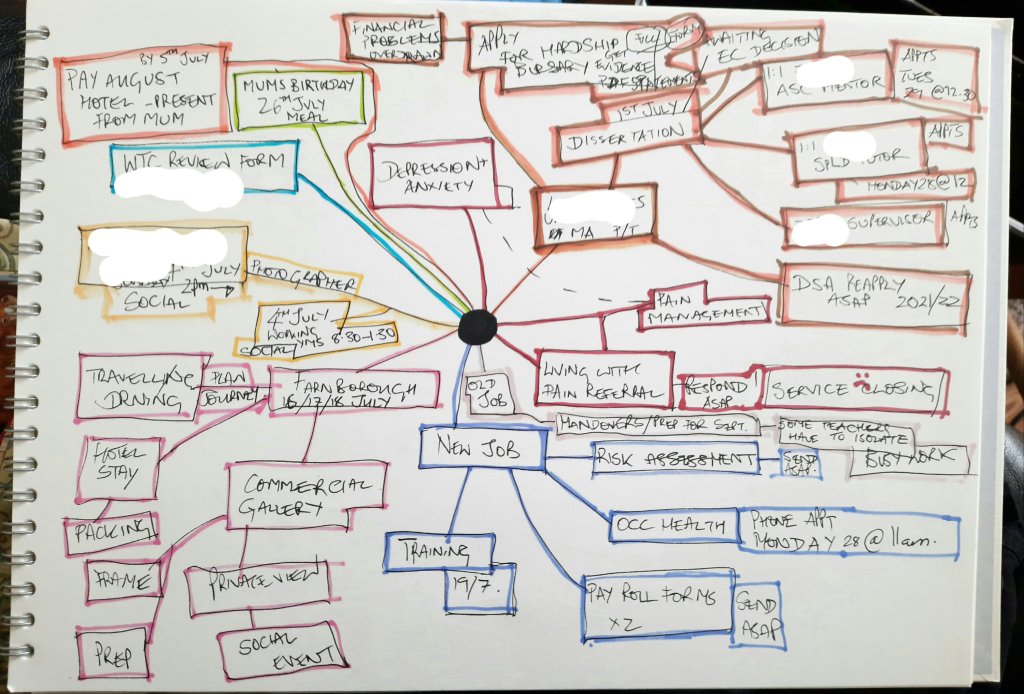 BY 5TH JULY
PAY AUGUST
HOTEL - PRESENT
FROM MUM
MUMS BIRTHDAY
26TH JULY
MEAL
WTC REVIEW FORM
FINANCIAL
PROBLEMS
OVERDRAWN
APPLY
FOR HARDSHIP
BURSARY
FULLY
FORM
GET
EVIDENCE
STATEMENTS
AWAITING
EC DECISION
1ST JULY
DISSERTATION
1:1
ASC MENTOR
APPTS
TUES
29 @12.30
1:1
SPLD TUTOR
APPTS
MONDAY 28 @ 12
SUPERVISOR
APPTS
MA P/T
DSA REAPPLY
ASAP 2021/22
DEPRESSION +
ANXIETY
JULY
2pm
SOCIAL
PHOTOGRAPHER
4TH JULY
WORKING
8:30-1:30
SOCIAL
PAIN
MANAGEMENT
LIVING WITH
PAIN REFERRAL
RESPOND
ASAP
SERVICE CLOSING
TRAVELLING
DRNING
PLAN
JOURNEY
FARNBOROUGH
16/17/18 JULY
HOTEL
STAY
PACKING
COMMERCIAL
GALLERY
FRAME
PREP
PRIVATE VIEW
SOCIAL
EVENT
OLD
JOB
MANOEVERS/PREP FOR SEPT.
SOME TEACHERS
HAVE TO ISOLATE
BUSY WORK
NEW JOB
RISK ASSESSMENT
SEND
ASAP.
OCC HEALTH
PHONE APPT
MONDAY 28 @ 11am.
TRAINING
19/7.
PAY ROLL FORMS
x2
SEND
ASAP